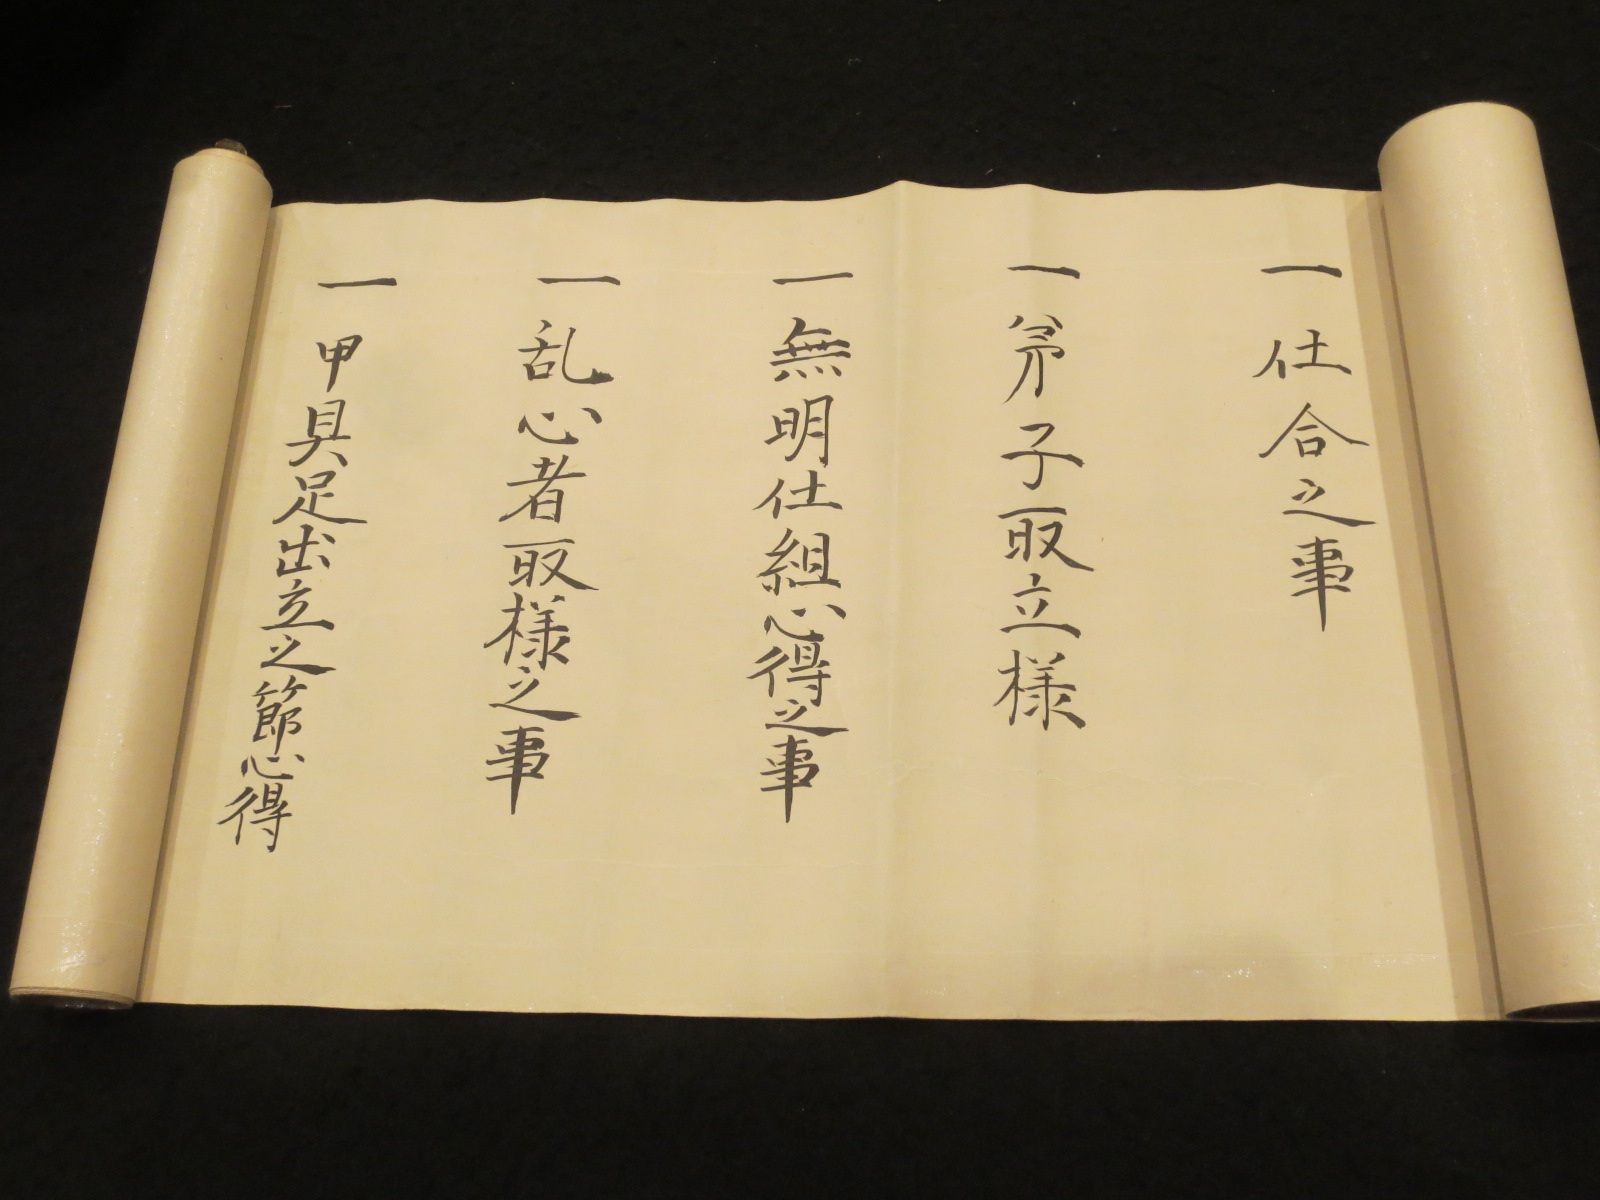 一 仕合之事
一 弟子取立様
一 無明仕組心得之事
一 乱心者取様之事
一 甲具足出立之節心得